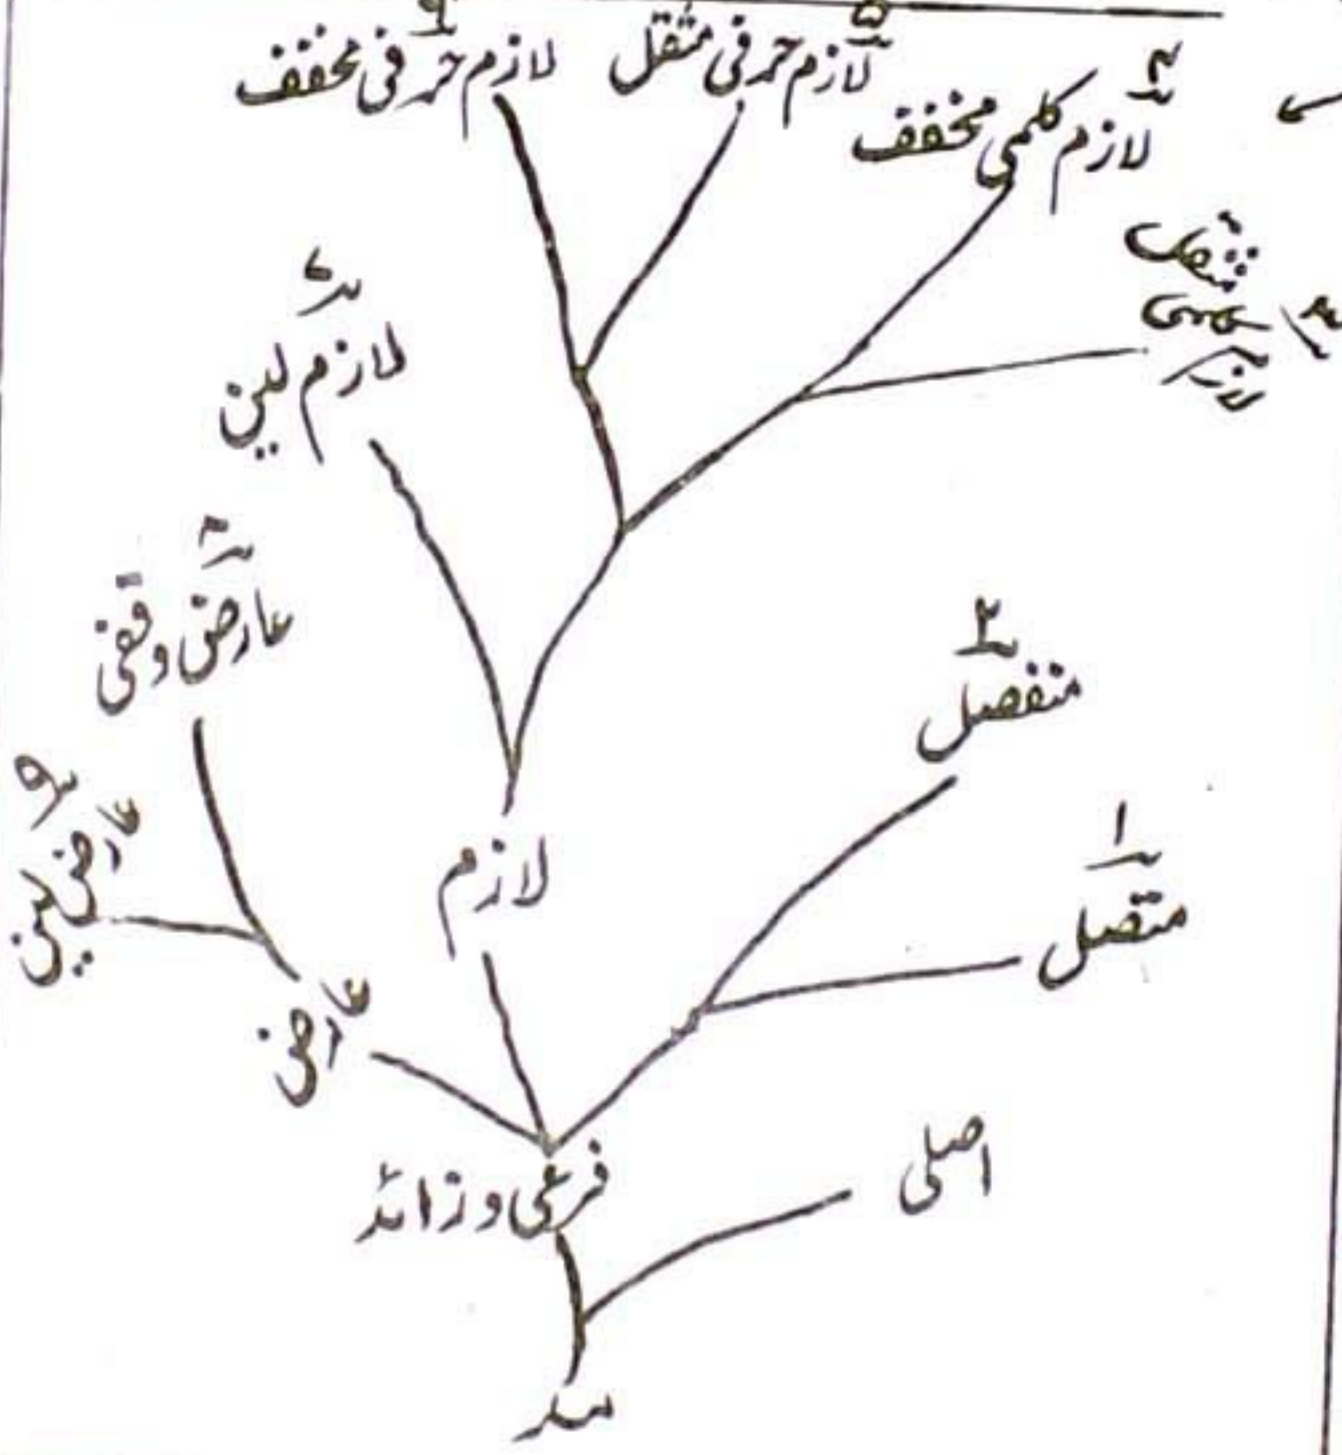 ۶
لازم حرفی مخفف
۵
لازم حرفی مثقل
۴
لازم کلمی مخفف
۳
لازم کلمی مثقل
۷
لازم لین
۸
عارض وقفی
۹
عارض لین
۲
منفصل
۱
متصل
لازم
عارض
فرعی و زائد
اصلی
مد